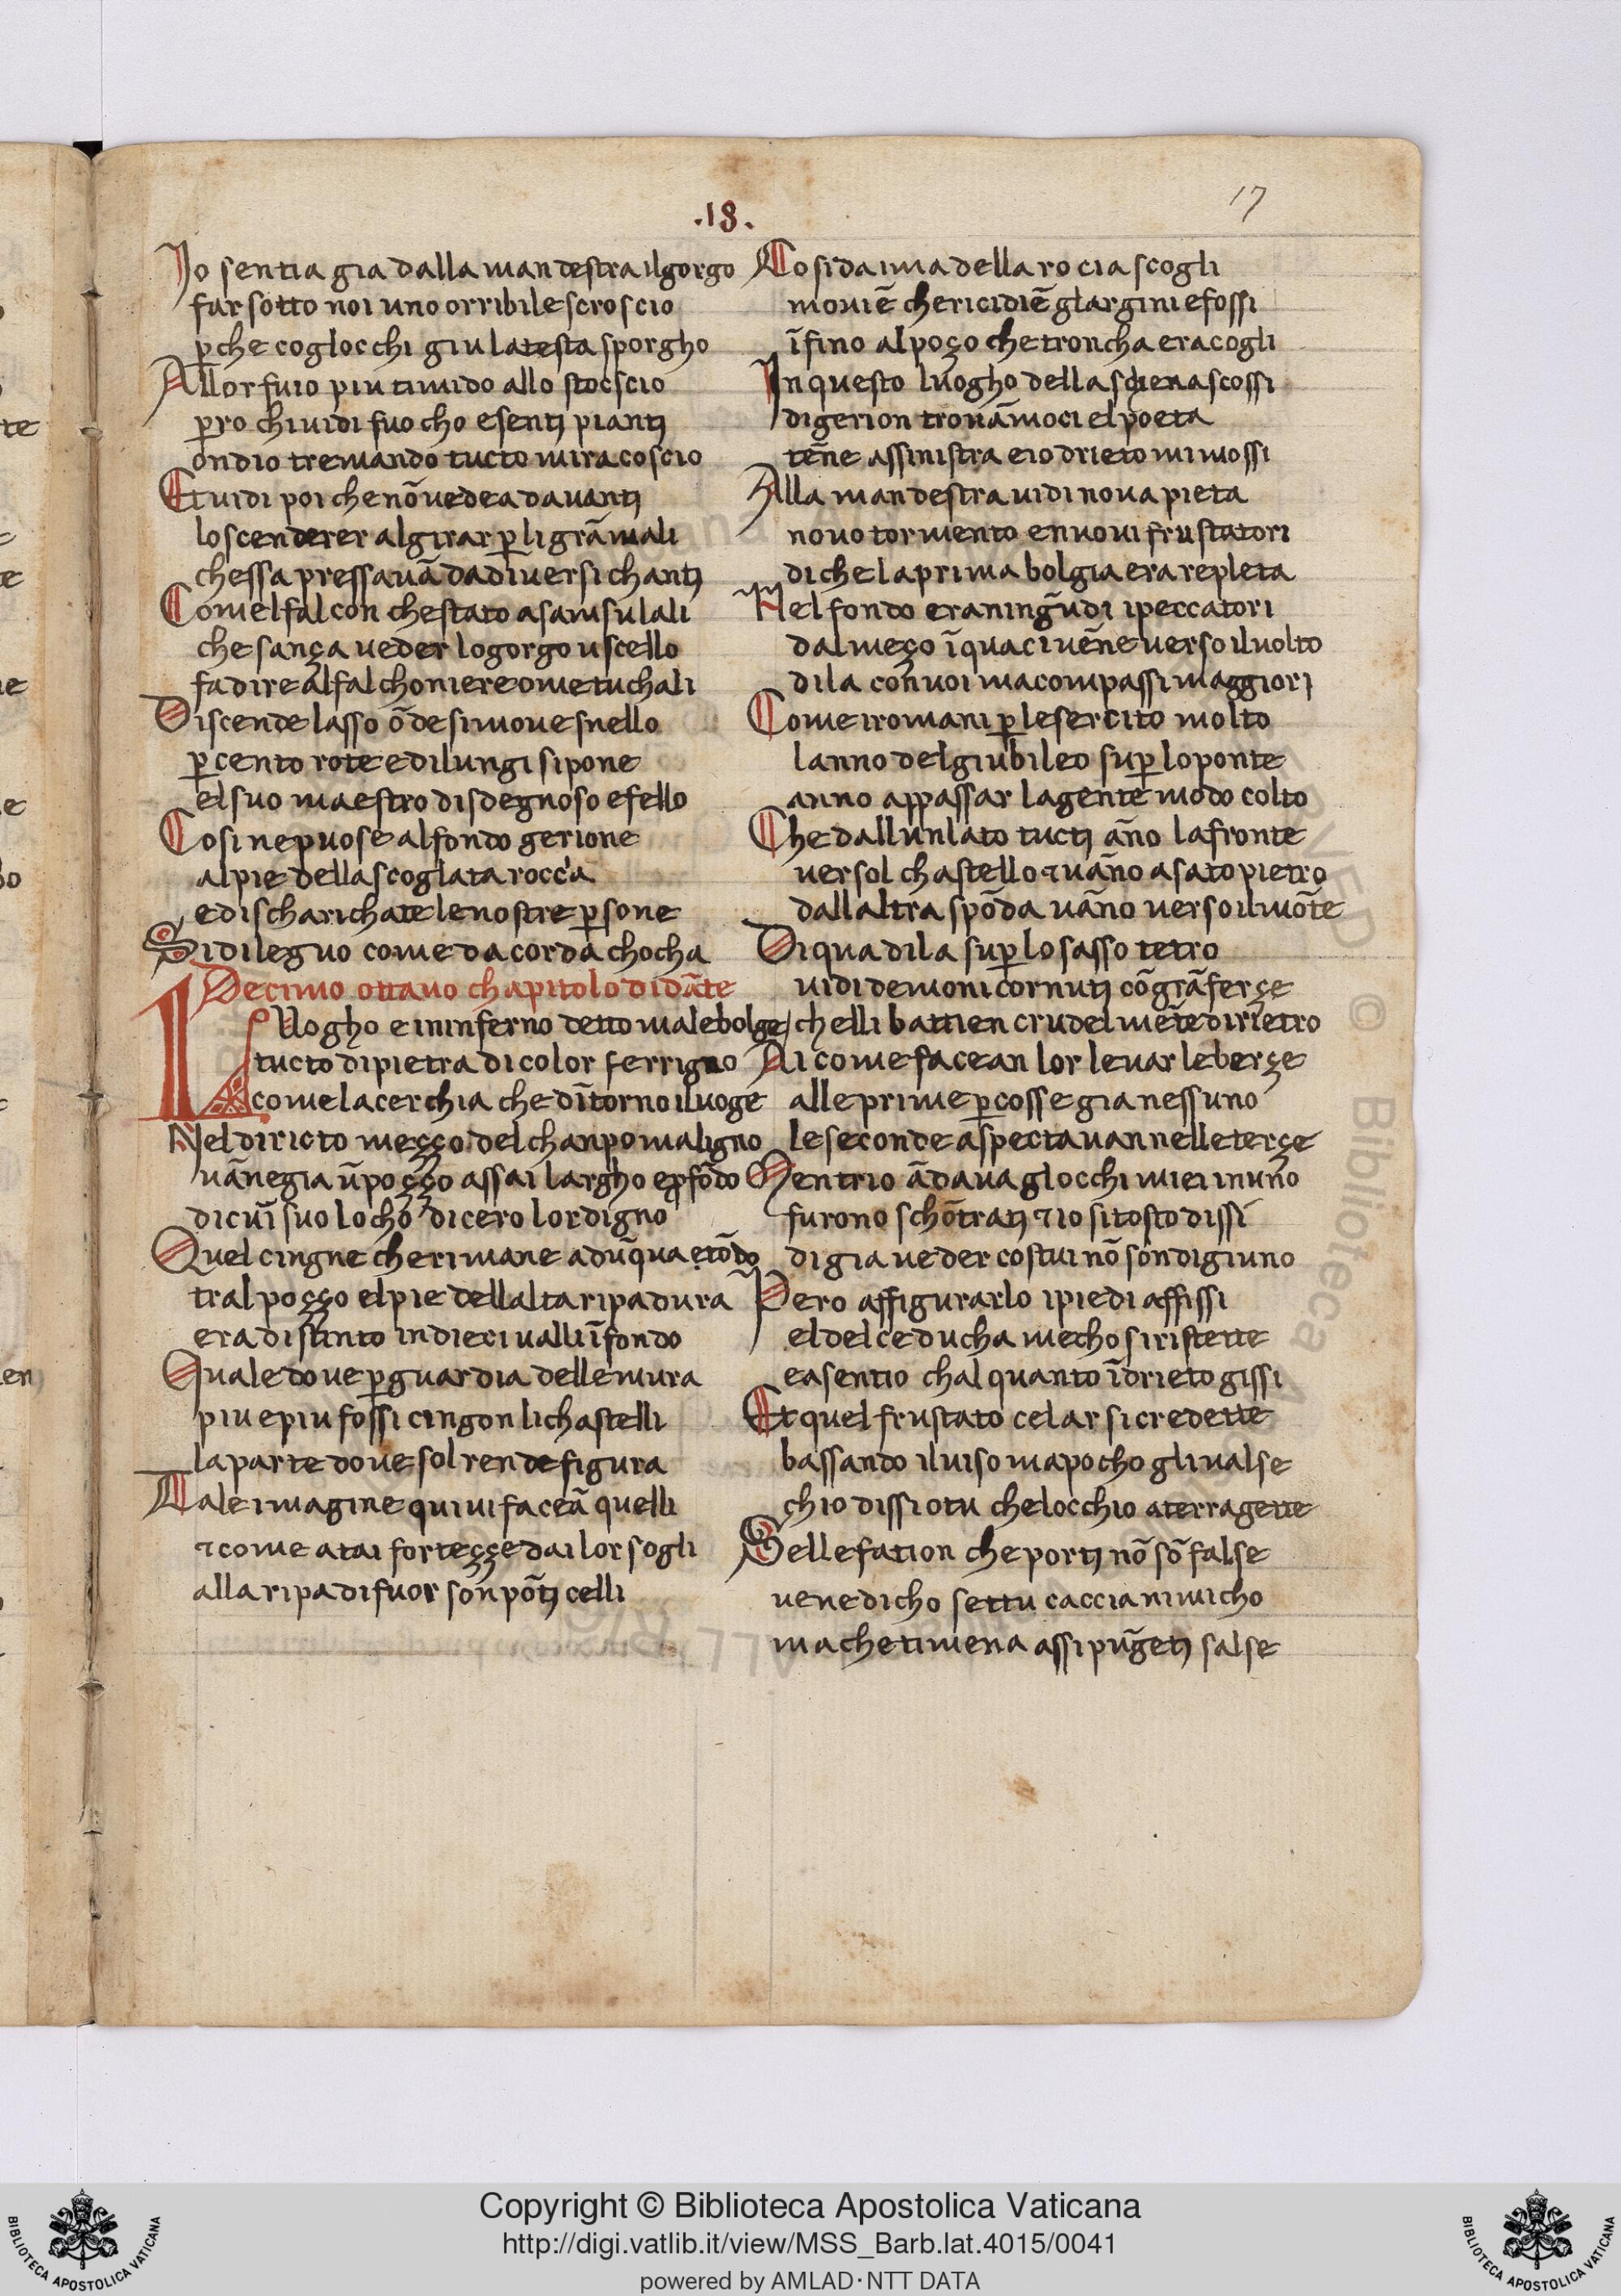 17
.18.
Jo sentia gia dalla man destra il gorgo
far sotto noi uno orribile scroscio
p̱che coglocchi giu la testa sporgho
Allor fuio piu timido allo stoscio
p̱ro chi uidi fuocho e sentj piantj
ondio tremando tucto mi racoscio
Et uidi poi che nõ uedea dauantj
lo scenderer al girar p̱ li grã mali
chessa pressauã da diuersi chantj
Comel falcon che stato asai nsu lali
che sança ueder logorgo uscello
fa dire al falchoniere ome tu chali
Discende lasso õde si moue snello
p̱ cento rote e di lungi si pone
el suo maestro disdegnoso e fello
Cosi ne puose al fondo gerione
al pie della scoglata rocca
e discharichate le nostre p̱sone
Si dileguo come da corda chocha
Decimo ottauo chapitolo di dãte
Luogho e in inferno detto malebolge
tucto di pietra di color ferrigno
come la cerchia che dĩtorno il uoge
Nel diricto meçço del chanpo maligno
uãnegia ũ poçço assai largho e ꝓfõdo
di cuĩ suo locho dicero lordigno
Quel cingne che rimane adũqua e tõdo
tral poçço el pie dellalta ripa dura
era distinto in dieci ualli ĩ fondo
Quale doue p̱ guardia delle mura
piu e piu fossi cingon li chastelli
la parte doue sol rende figura
Tale imagine quiui faceã quelli
⁊ come a tai forteççe dai lor sogli
alla ripa di fuor son põtj celli
Cosi da ima della rocia scogli
mouiẽ che ricidiẽ glargini e fossi
ĩfino al poço che troncha e racogli
In questo luogho della schiena scossi
di gerion trouãmoci el poeta
tẽne assinistra e io drieto mi mossi
Alla man destra uidi noua pieta
nouo tormento e nnoui frustatori
di che la prima bolgia era repleta
Nel fondo eran ingñudi i peccatori
dal meço ĩ qua ci uẽne uerso il uolto
di la con noi ma com passi maggiorj
Come i romani p̱ lesercito molto
lanno del giubileo sup̱ lo ponte
anno appassar la gente modo colto
Che dallun lato tuctj ãno la fronte
uersol chastello ⁊ uãno a sãto pietro
dallaltra spõda uãno uerso il mõte
Di qua di la sup̱ lo sasso tetro
uidi demoni cornutj cõ grã ferçe
chelli battien crudelmẽte di rietro
Ai come facean lor leuar le berçe
alle prime p̱cosse gia nessuno
le seconde aspectauan nelle terçe
Mentrio ãdaua glocchi miei in uño
furono schõtratj ⁊ io si tosto dissi
di gia ueder costui nõ son digiuno
Pero affigurarlo i piedi affissi
el delce ducha mecho si ristette
e asentio chalquanto ĩdrieto gissi
Et quel frustato celar si credette
bassando il uiso ma pocho gli ualse
chio dissi o tu che locchio a terra gette
Selle fation che portj nõ sõ false
uenedicho settu caccianimicho
ma che ti mena assi pũgetj salse
Copyright © Biblioteca Apostolica Vaticana
http://digi.vatlib.it/view/MSS_Barb.lat.4015/0041
powered by AMLAD·NTT DATA
BIBLIOTECA APOSTOLICA VATICANA
BIBLIOTECA APOSTOLICA VATICANA